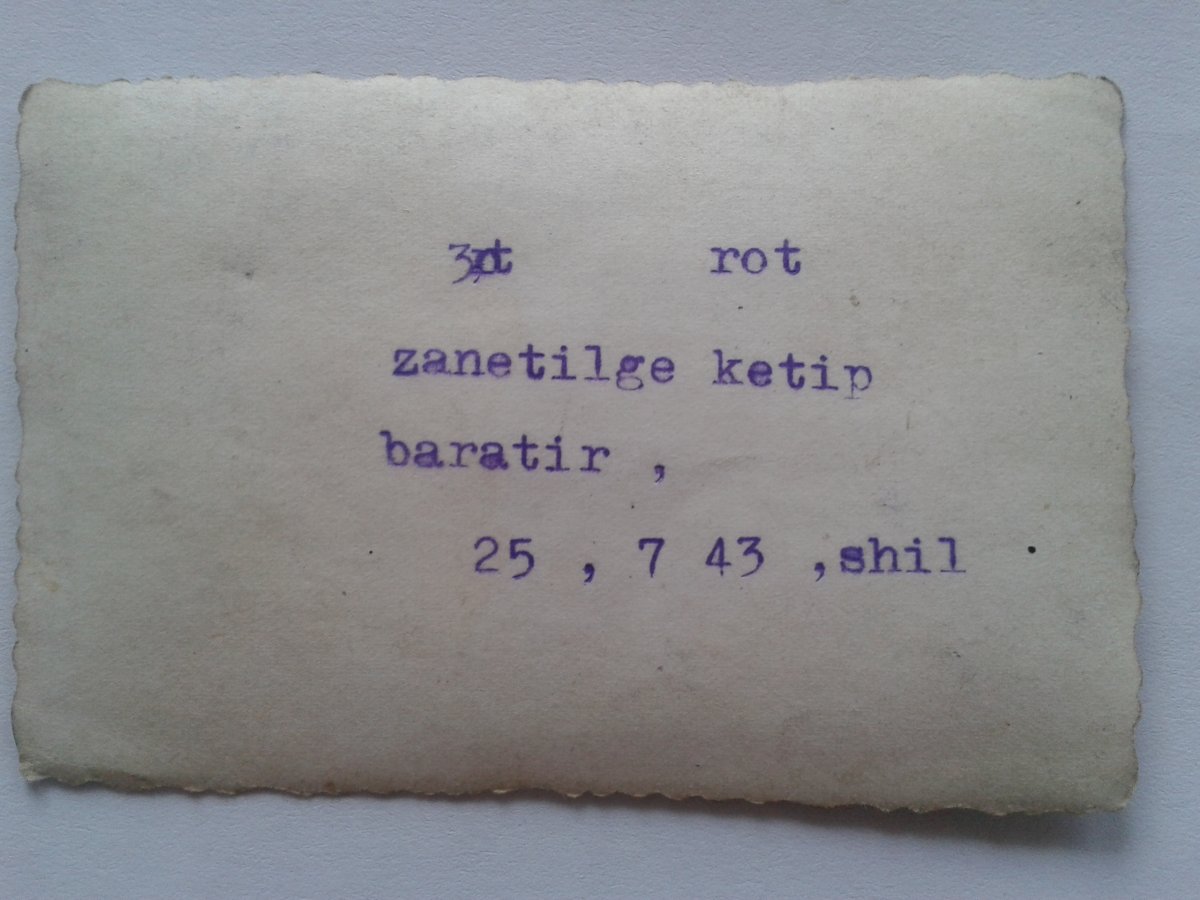 rot
zanetilge ketip
baratir ,
25 , 7 43 ,shil